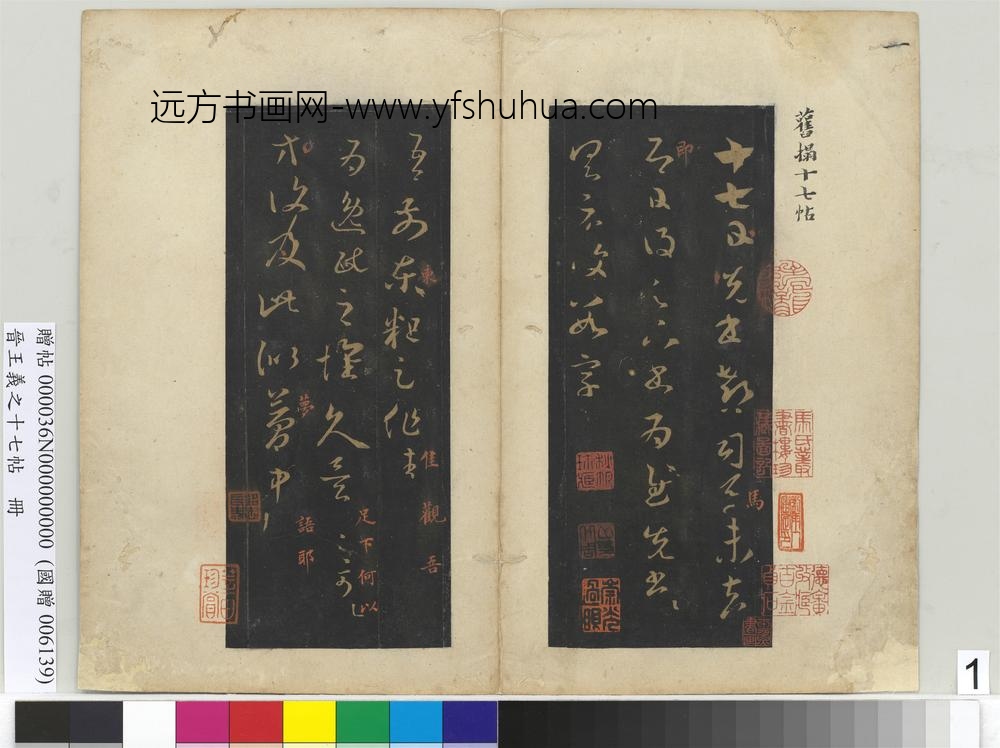 远方书画网-www.yfshuhua.com
一
舊搨十七帖
十七日先書郗司馬未去
馬
即日得足下書為慰先書以
即
具示復數字
吾前東粗足作佳
東
佳觀吾
為逸民之懷久矣足下何以
足下何以
方復及此似夢中
夢
語耶
馬氏叢書樓珍
贈帖 000036N000000000 (國贈 006139)
晉王羲之十七帖 冊
1